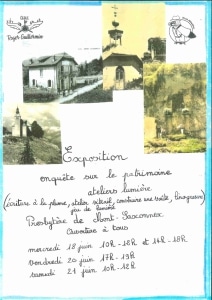 Roger Guillermin
Exposition
enquête sur le patrimoine
ateliers lumière
(écriture à la plume, atelier vitrail, construire une voûte,
jeu de lumière
Presbytère de Mont-Saxonnex
Ouverture à tous
mercredi 18 juin 10h-12h et 14h-18h
vendredi 20 juin 17h-19h
samedi 21 juin 10h-12h